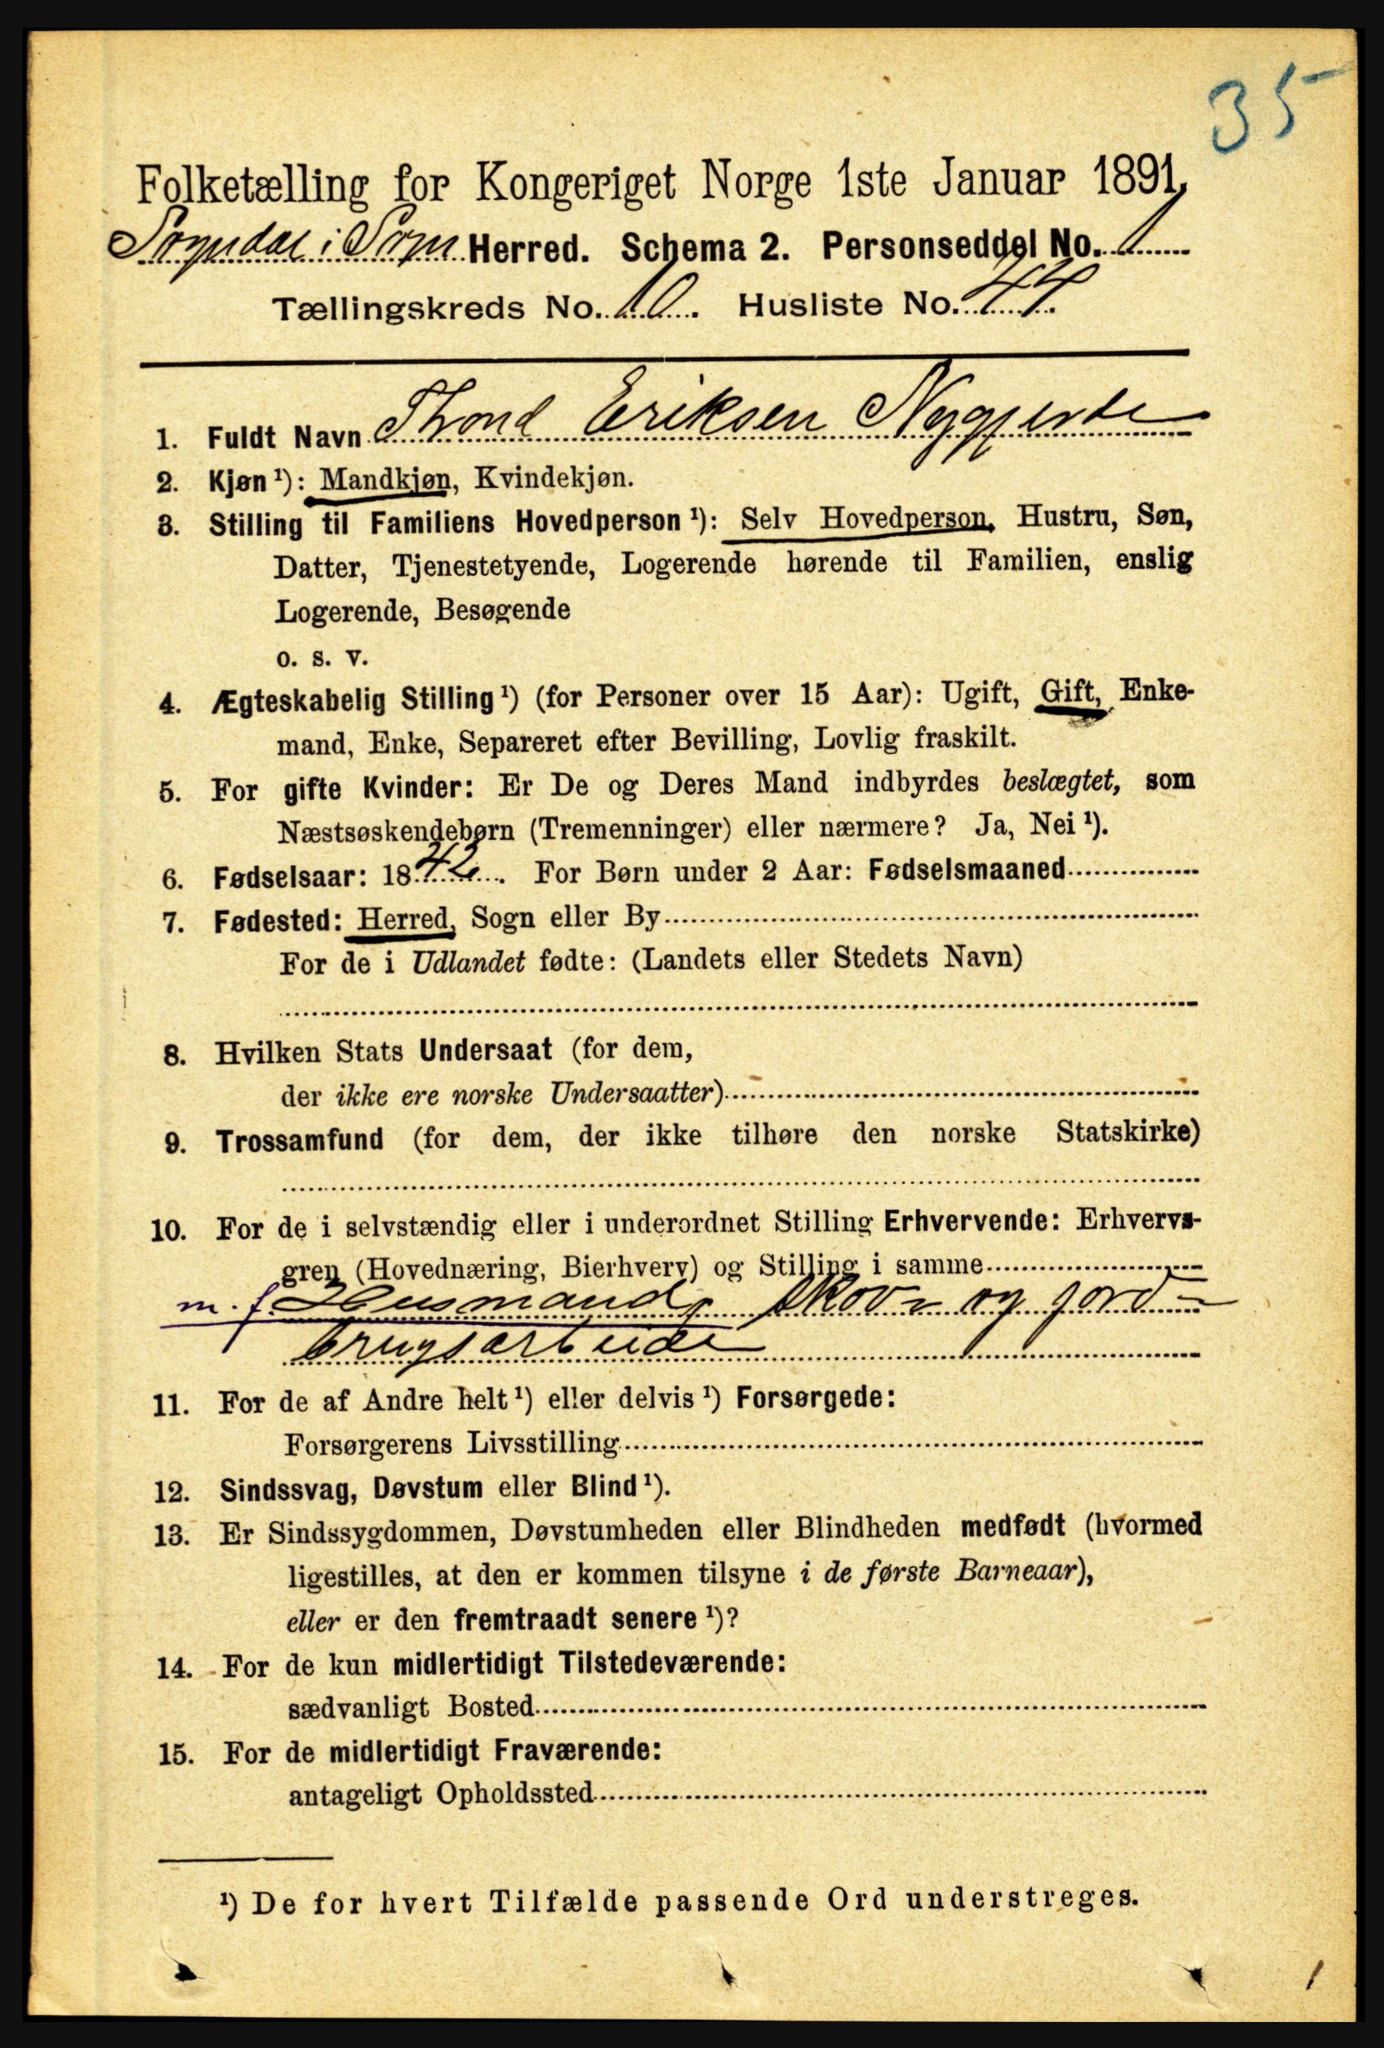 35
Folketælling for Kongeriget Norge 1ste Januar 1891.
Sogndal i Sogn Herred. Schema 2. Personseddel No. 1
Tællingskreds No. 10. Husliste No. 44
1. Fuldt Navn Thond Eriksen Nygjerde
2. Kjøn¹): Mandkjøn, Kvindekjøn.
3. Stilling til Familiens Hovedperson¹): Selv Hovedperson, Hustru, Søn,
Datter, Tjenestetyende, Logerende hørende til Familien, enslig
Logerende, Besøgende
o. s. v.
4. Ægteskabelig Stilling¹) (for Personer over 15 Aar): Ugift, Gift, Enke-
mand, Enke, Separeret efter Bevilling, Lovlig fraskilt.
5. For gifte Kvinder: Er De og Deres Mand indbyrdes beslægtet, som
Næstsøskendebørn (Tremenninger) eller nærmere? Ja, Nei¹).
6. Fødselsaar: 1842. For Børn under 2 Aar: Fødselsmaaned
7. Fødested: Herred, Sogn eller By
For de i Udlandet fødte: (Landets eller Stedets Navn)
8. Hvilken Stats Undersaat (for dem,
der ikke ere norske Undersaatter)
9. Trossamfund (for dem, der ikke tilhøre den norske Statskirke)
10. For de i selvstændig eller i underordnet Stilling Erhvervende: Erhvervs-
gren (Hovednæring, Bierhverv) og Stilling i samme
m. f. Husmand, skov- og jord-
brugsarbeide
11. For de af Andre helt¹) eller delvis¹) Forsørgede:
Forsørgerens Livsstilling
12. Sindssvag, Døvstum eller Blind¹).
13. Er Sindssygdommen, Døvstumheden eller Blindheden medfødt (hvormed
ligestilles, at den er kommen tilsyne i de første Barneaar),
eller er den fremtraadt senere¹)?
14. For de kun midlertidigt Tilstedeværende:
sædvanligt Bosted
15. For de midlertidigt Fraværende:
antageligt Opholdssted
¹) De for hvert Tilfælde passende Ord understreges.
1